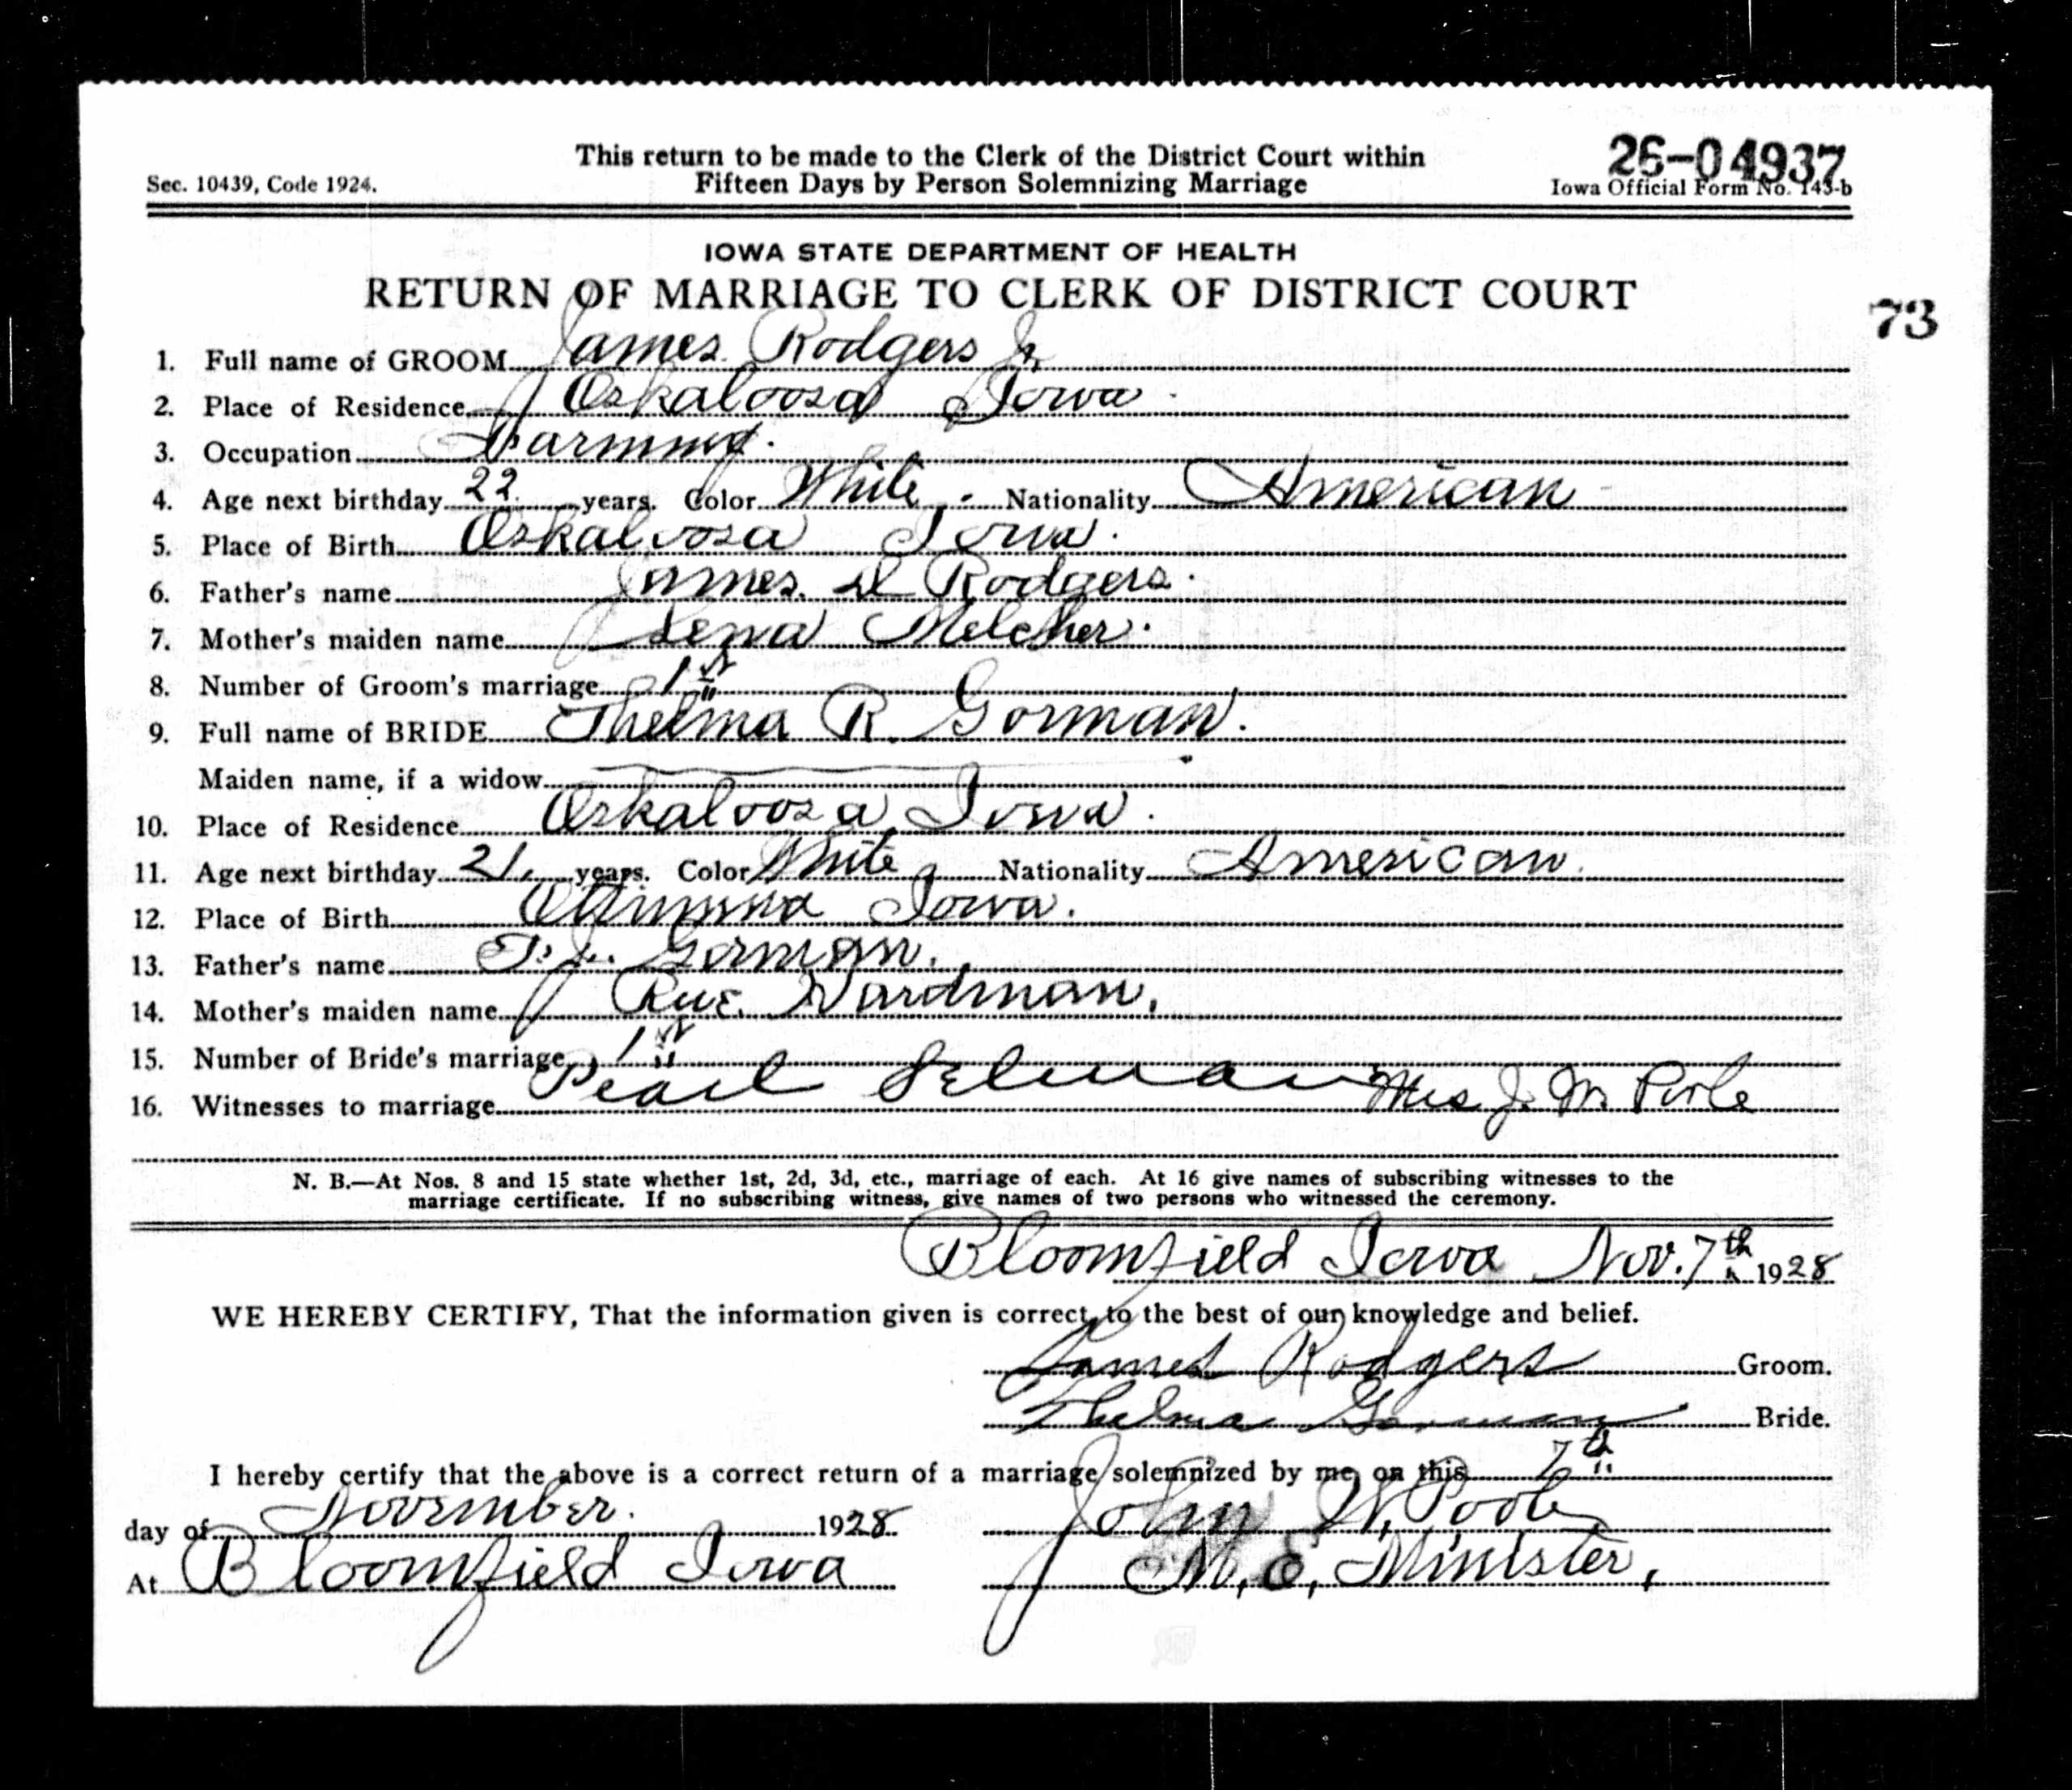 This return to be made to the Clerk of the District Court within
Fifteen Days by Person Solemnizing Marriage
Sec. 10439, Code 1924.
26-04937
Iowa Official Form No. 143-b
IOWA STATE DEPARTMENT OF HEALTH
RETURN OF MARRIAGE TO CLERK OF DISTRICT COURT
73
1. Full name of GROOM James Rodgers Jr.
2. Place of Residence Oskaloosa Iowa
3. Occupation Farming.
4. Age next birthday 22 years. Color White. Nationality American
5. Place of Birth Oskaloosa Iowa.
6. Father's name James. D Rodgers.
7. Mother's maiden name Lena Melcher.
8. Number of Groom's marriage 1st
9. Full name of BRIDE Thelma R. Gorman.
Maiden name, if a widow
10. Place of Residence Oskaloosa, Iowa.
11. Age next birthday 21. years. Color White Nationality American.
12. Place of Birth Ottumwa Iowa.
13. Father's name T. J. Gorman.
14. Mother's maiden name Rue Hardman.
15. Number of Bride's marriage 1st
16. Witnesses to marriage Pearl Selman Mrs J. M. Poole
N. B.—At Nos. 8 and 15 state whether 1st, 2d, 3d, etc., marriage of each. At 16 give names of subscribing witnesses to the
marriage certificate. If no subscribing witness, give names of two persons who witnessed the ceremony.
Bloomfield Iowa Nov. 7th 1928
WE HEREBY CERTIFY, That the information given is correct to the best of our knowledge and belief.
James Rodgers Groom.
Thelma Gorman Bride.
I hereby certify that the above is a correct return of a marriage solemnized by me, on this 7th
day of November. 1928. John W. Poole
At Bloomfield Iowa M. E. Minister,